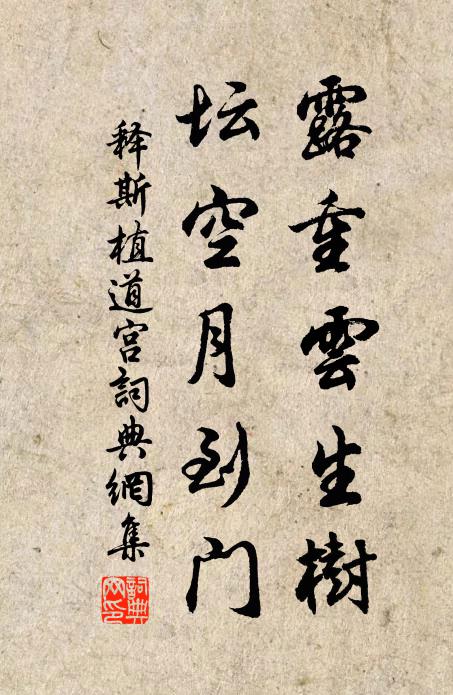 露重雲生樹
坛空月到门
释斯植道宫詞典網集
詞典网印